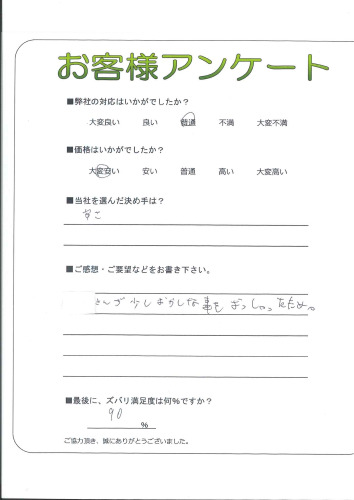 お客様アンケート
■弊社の対応はいかがでしたか?
大変良い 良い 普通 不満 大変不満
■価格はいかがでしたか?
大変安い 安い 普通 高い 大変高い
■当社を選んだ決め手は?
■ご感想・ご要望などをお書き下さい。
さんが少しおかしな事をおっしゃったため。
■最後に、ズバリ満足度は何%ですか?
90
%
ご協力頂き、誠にありがとうございました。